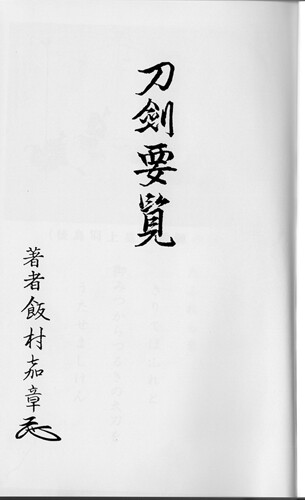 刀剣要覧
著者飯村嘉章